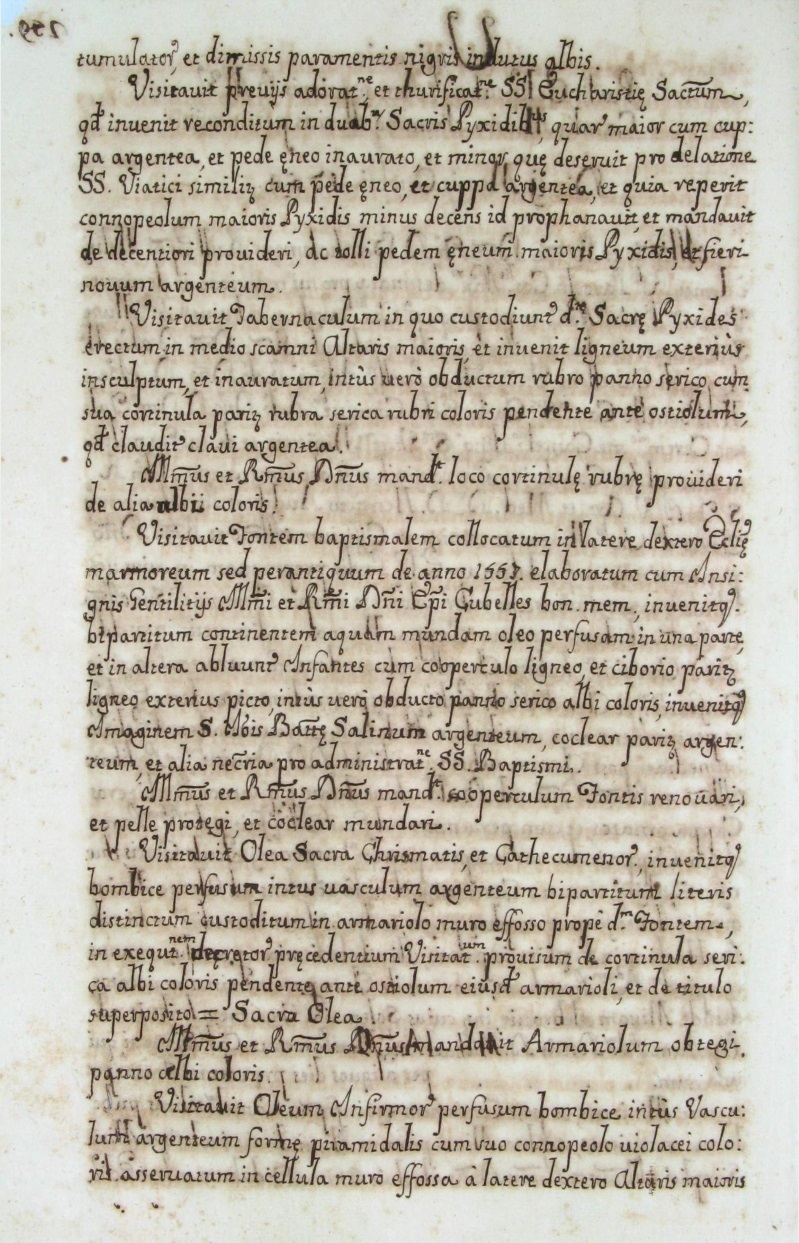 tumulator, et dimissis paramentis nigris indutus albis.
Visitauit preuijs adorat.ne et thurificat.ne SS. Eucharistię Sactum,
qd inuenit reconditum in duab. Sacris Pyxidib, quar maior cum cup:
pa argentea, et pede ęneo inaurato, et minor quę deseruit pro delatione
SS. Viatici similit cum pede ęneo, et cuppa argentea, et quia reperit
connopeolum maioris Pyxidis minus decens id prophanauit, et mandauit
de decentiori prouideri, ac tolli pedem ęneum maioris Pyxidis, et fieri
nouum argenteum.
Visitauit Tabernaculum in quo custodiunt d.te Sacrę Pyxides
erectum in medio scamni Altaris maioris, et inuenit ligneum exteriùs
insculptum, et inauratum, intùs uerò obductum rubro panno serico, cum
sua cortinula parit rubra serica rubri coloris pendente ante ostiolum,
qd claudit claui argentea.
Illmus et Rmus Dnus mand.t loco cortinulę rubrę prouideri
de alia albi coloris.
Visitauit Fontem baptismalem collocatum in latere dextero Eclię
marmoreum sed perantiquum de anno elaboratum cum Insi:
gnis Gentilitijs Illmi et Rmi Dni Epi Cubelles bon. mem, inuenitq.
bipartitum continentem aquam mundam oleo perfusam in una parte,
et in altera abluunt Infantes cum coopertulo ligneo, et ciborio parit
ligneo exterius picto, intùs uerò obducto panno serico albi coloris, inuenitq
Imaginem S. Batte Salinum argenteum, coclear parit argen:
teum, et alia necria pro administrat.ne SS. Baptismi.
Illmus et Rmus Dnus mand.t coopertulum Fontis renouari,
et pelle protegi, et coclear mundari.
Visitauit Olea Sacra Chrismatis, et Cathecumenor, inuenitq
bombice perfusum intus uasculum argenteum bipartitum literis
distinctum custoditum in armariolo muro effosso propè d.m Fontem,
in exequt.nem decretor pręcedentium Visitat.um prouisum de cortinula seri:
ca albi coloris pendente ante ostiolum eiusd armarioli, et de titulo
superposito = Sacra Olea.
Illmus et Rmus Dnus Mandauit Armariolum obtegi
panno albi coloris.
Visitauit Oleum Infirmor perfusum bombice intùs Vascu:
lum argenteum formę piramidalis cum suo connopeolo uiolacei colo:
ris asseruatum in cellula muro effossa à latere dextero Altaris maioris